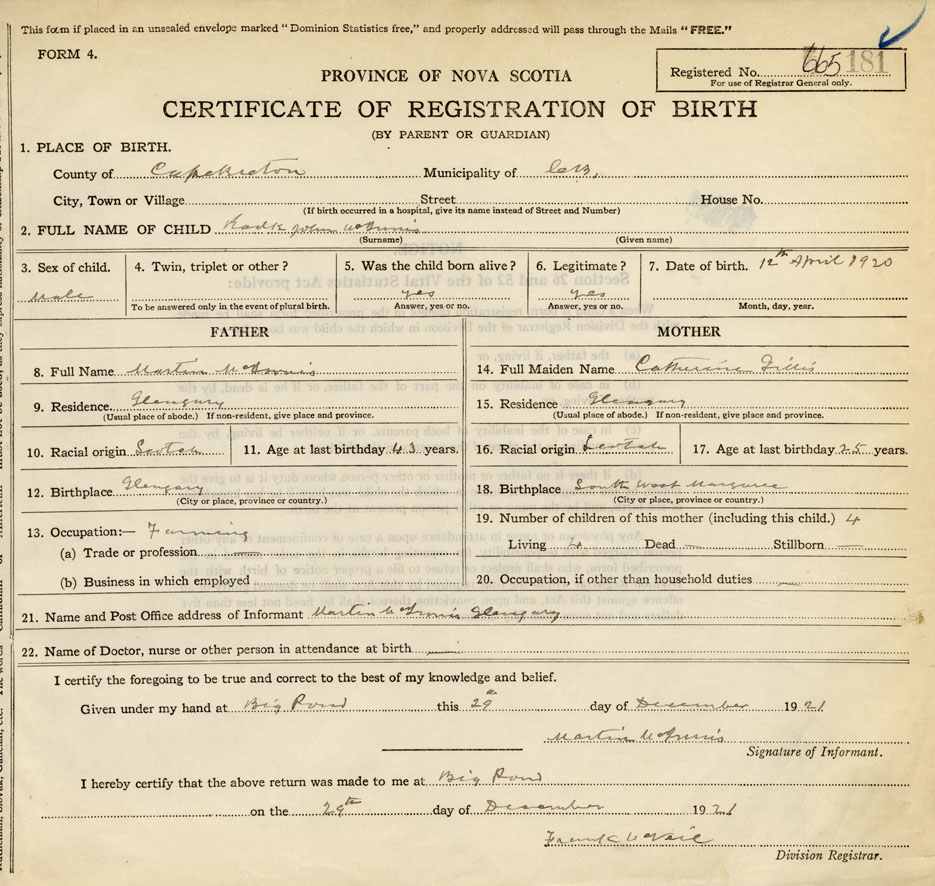 This form if placed in an unsealed envelope marked "Dominion Statistics free," and properly addressed will pass through the Mails "FREE."
FORM 4.
Registered No. 665 181
For use of Registrar General only.
PROVINCE OF NOVA SCOTIA
CERTIFICATE OF REGISTRATION OF BIRTH
(BY PARENT OR GUARDIAN)
1. PLACE OF BIRTH.
County of Cape Breton Municipality of C.B.
City, Town or Village Street House No.
(If birth occurred in a hospital, give its name instead of Street and Number)
2. FULL NAME OF CHILD John McInnis
(Surname) (Given name)
3. Sex of child. 4. Twin, triplet or other? 5. Was the child born alive? 6. Legitimate? 7. Date of birth. 12th April 1920
Male yes yes
To be answered only in the event of plural birth. Answer, yes or no. Answer, yes or no. Month, day, year.
FATHER MOTHER
8. Full Name Martin McInnis 14. Full Maiden Name Catherine Gillis
9. Residence Glengary 15. Residence Glengary
(Usual place of abode.) If non-resident, give place and province. (Usual place of abode.) If non-resident, give place and province.
10. Racial origin Scotch 11. Age at last birthday 43 years. 16. Racial origin Scotch 17. Age at last birthday 25 years.
12. Birthplace Glengary 18. Birthplace South West Margaree
(City or place, province or country.) (City or place, province or country.)
13. Occupation:— Farming 19. Number of children of this mother (including this child.) 4
(a) Trade or profession — Living 4 Dead — Stillborn —
(b) Business in which employed 20. Occupation, if other than household duties —
21. Name and Post Office address of Informant Martin McInnis Glengary
22. Name of Doctor, nurse or other person in attendance at birth —
I certify the foregoing to be true and correct to the best of my knowledge and belief.
Given under my hand at Big Pond this 29th day of December 1921
Martin McInnis
Signature of Informant.
I hereby certify that the above return was made to me at Big Pond
on the 29th day of December 1921
Frank McNeil
Division Registrar.